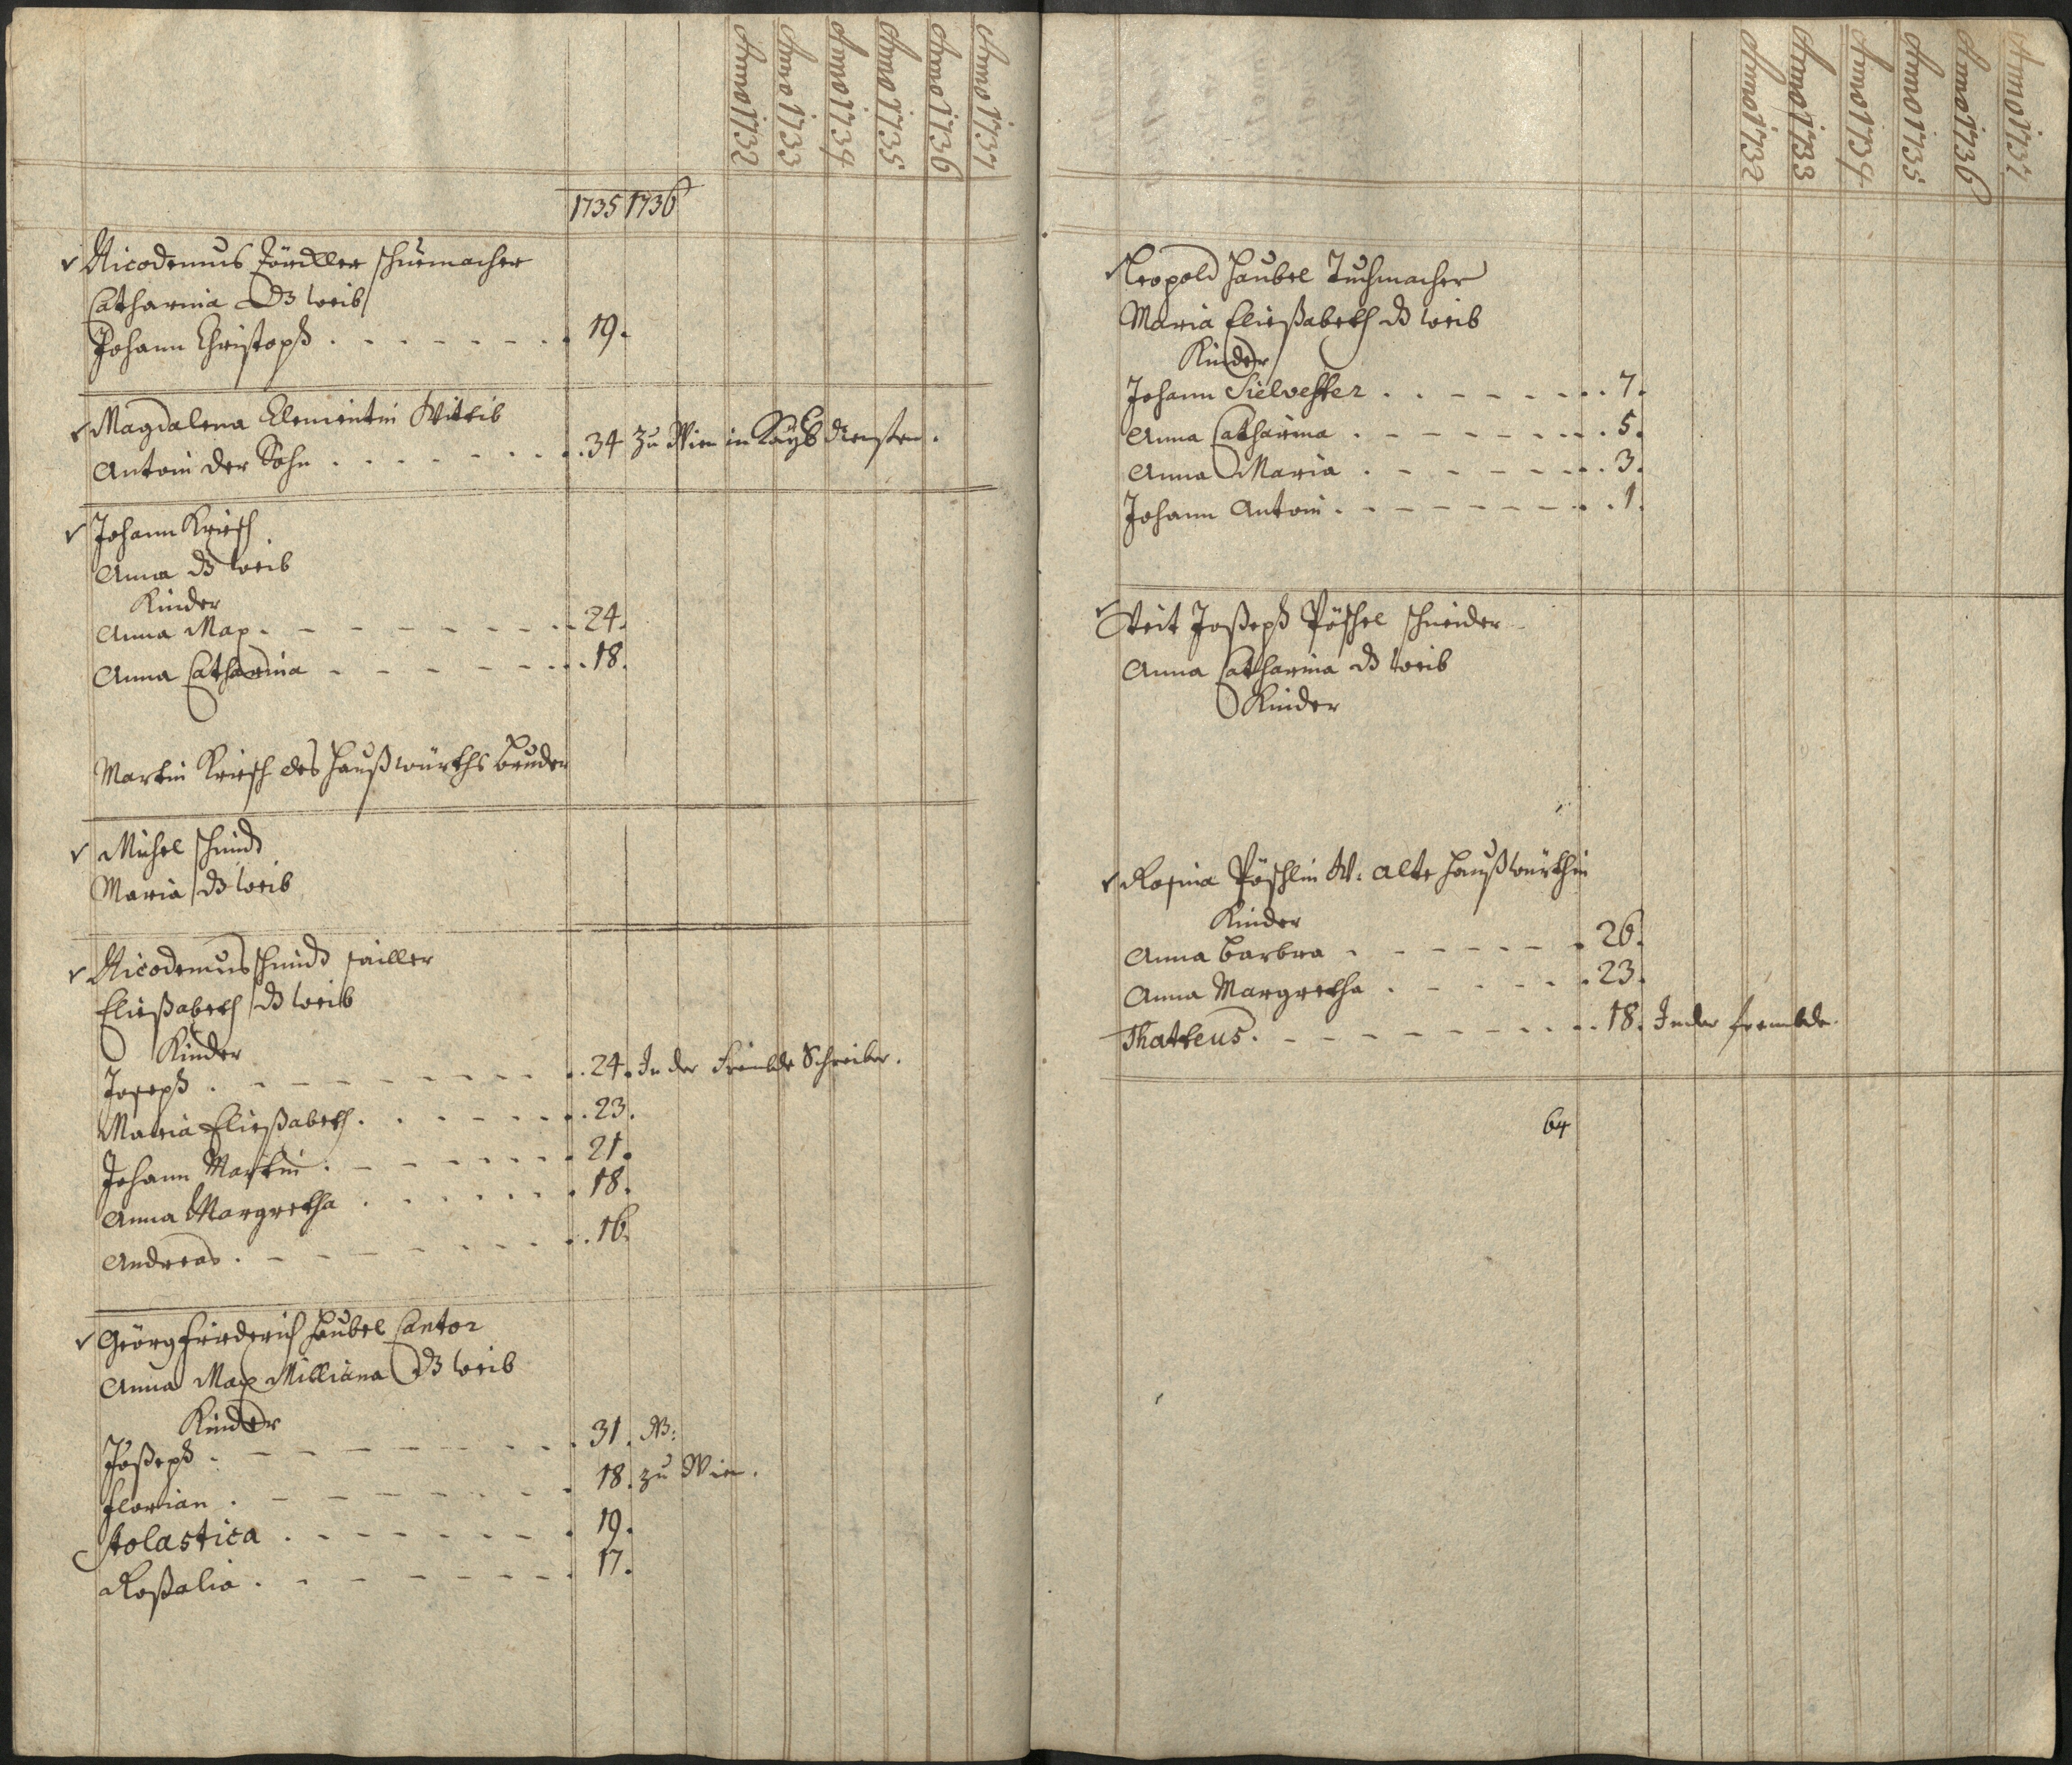 Anno 1732 Anno 1733 Anno 1734 Anno 1735 Anno 1736 Anno 1737
1735 1736
Nicodemus schuemacher
Catharina dz weib
Johann Christoph 19.
Magdalena Clementin Wittib
Antoni der Sohn 34 zu Wien in Kays diensten.
Johann Kriesch
Anna dz weib
Kinder
Anna Max. 24.
Anna Catharina 18.
Martin Kriesch des Haußwürths bruder
Michel schmid
Maria dz weib
Nicodemus schmid sailler
Eließabeth dz weib
Kinder
Joseph 24. In der Frembde Schreiber.
Maria Eließabeth 23.
Johann Martin 21.
Anna Margretha 18.
Andreas 16.
Geörg Friderich Haubel Cantor
Anna Max Milliana dz weib
Kinder
Joßeph 31. W:
Florian 18. zu Wien.
Skolastica 19.
Roßalia 17.
Anno 1732 Anno 1733 Anno 1734 Anno 1735 Anno 1736 Anno 1737
Leopold Haubel Tuchmacher
Maria Eließabeth dz weib
Kinder
Johann Sielvester 7.
Anna Catharina 5.
Anna Maria 3.
Johann Antoni 1.
Veit Joßeph Pöschel schneider
Anna Catharina dz weib
Kinder
Rosina Pöschlin W: alte Haußwürthin
Kinder
Anna barbra 26.
Anna Margretha 23.
Thatteus 18. In der frembde.
64